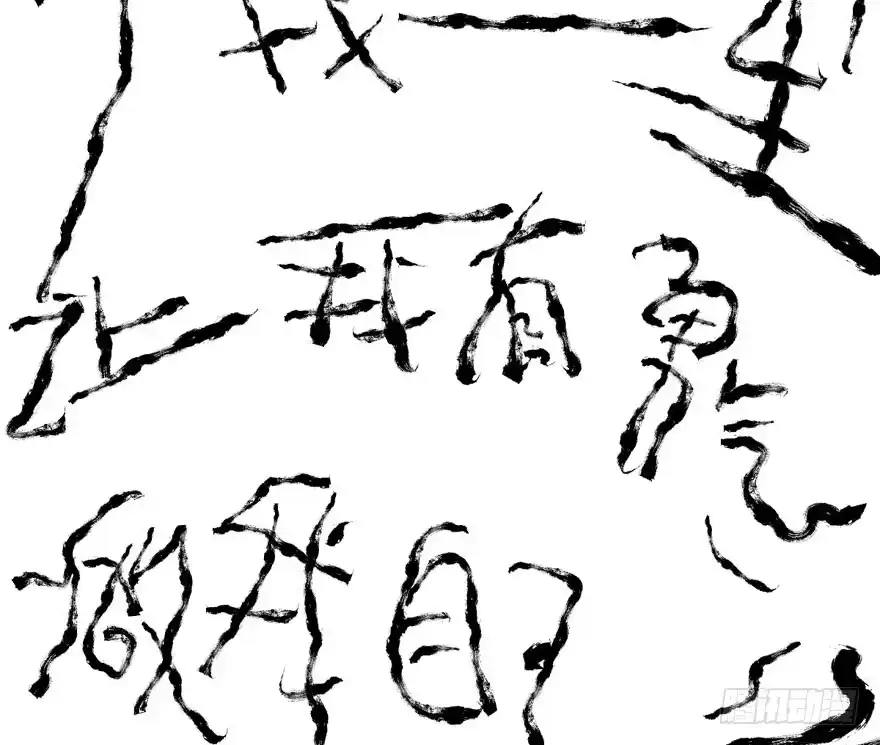 一生
让我有勇气
做我自己
腾讯动漫